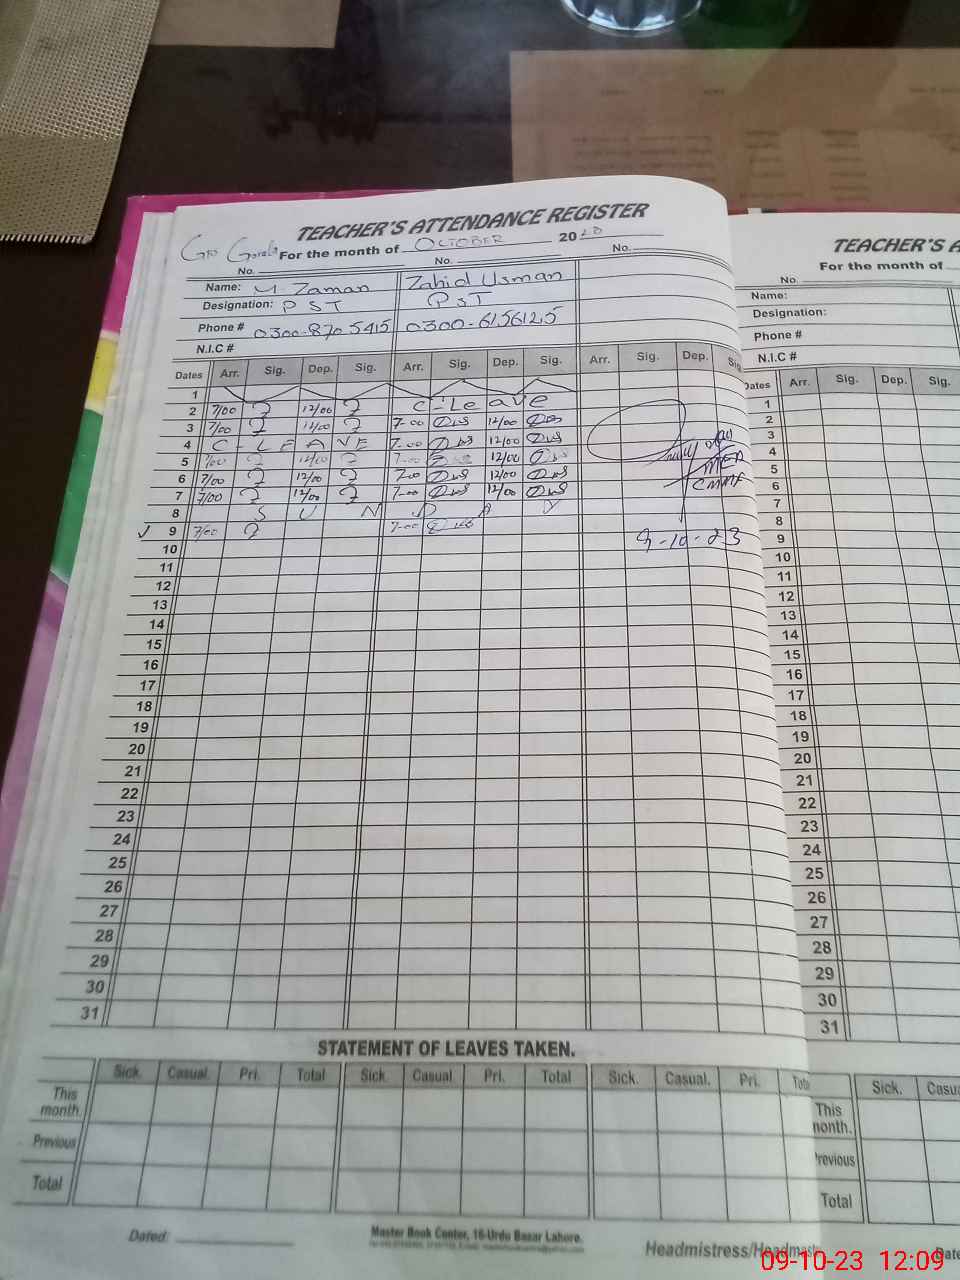 TEACHER'S ATTENDANCE REGISTER
For the month of OCTOBER 20
No. No. No.
Name: M. Zaman Zahid Usman
Designation: PST PST
Phone # 0300-870 5415 0300-6156125
N.I.C #
Dates Arr. Sig. Dep. Sig. Arr. Sig. Dep. Sig. Arr. Sig. Dep. Sig.
1
2 7/00 12/00 C-Leave
3 7/00 12/00 7-00 12/00
4 C-LEAVE 7-00 12/00
5 7/00 12/00 7-00 12/00
6 7/00 12/00 7-00 12/00
7 7/00 12/00 7-00 12/00
8 SUNDAY
9 7/00 7-00
9-10-23
10
11
12
13
14
15
16
17
18
19
20
21
22
23
24
25
26
27
28
29
30
31
STATEMENT OF LEAVES TAKEN.
Sick. Casual. Pri. Total Sick. Casual Pri. Total Sick. Casual. Pri. Tota
This month.
Previous
Total
Dated:
Master Book Center, 16-Urdu Bazar Lahore.
Headmistress/Headmast
TEACHER'S A
For the month of
No.
Name:
Designation:
Phone #
N.I.C #
Dates Arr. Sig. Dep. Sig.
1
2
3
4
5
6
7
8
9
10
11
12
13
14
15
16
17
18
19
20
21
22
23
24
25
26
27
28
29
30
31
Sick. Casua
This month.
Previous
Total
Date
09-10-23 12:09